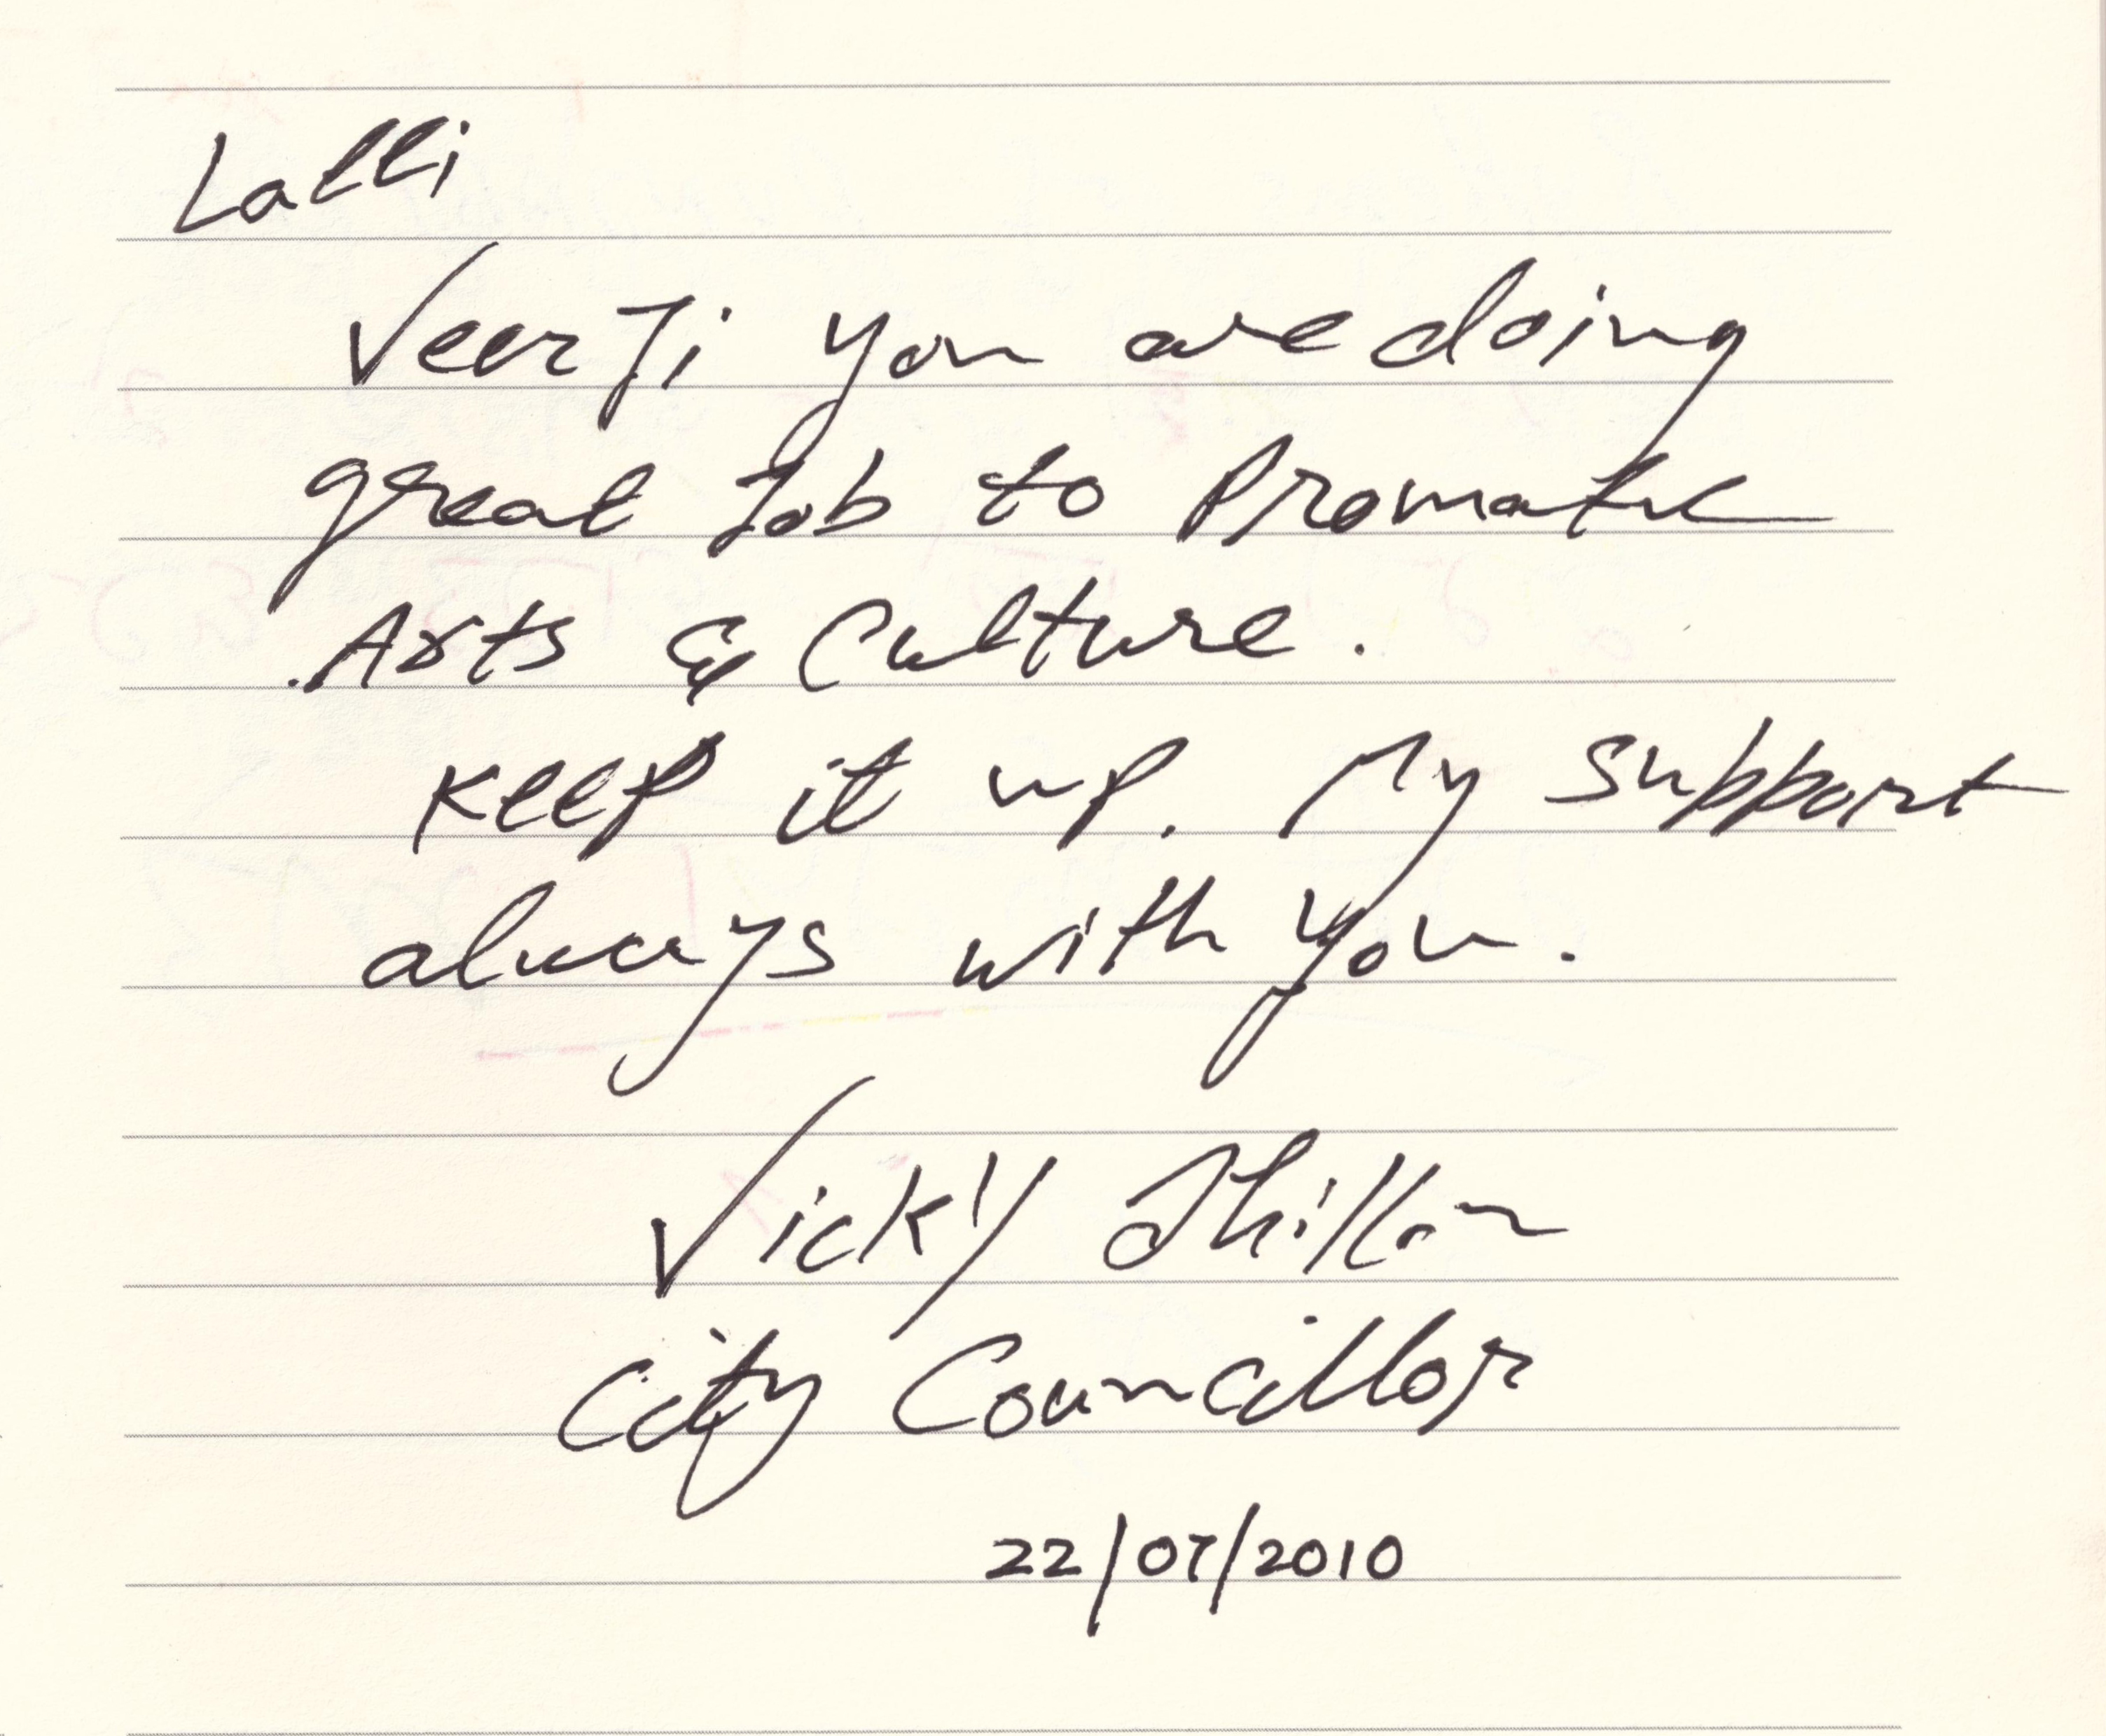 Lalli
Veer Ji you are doing
great Job to Promote
Arts & Culture.
Keep it up. My support
always with you.
Vicky Dhillon
City Councillor
22/07/2010